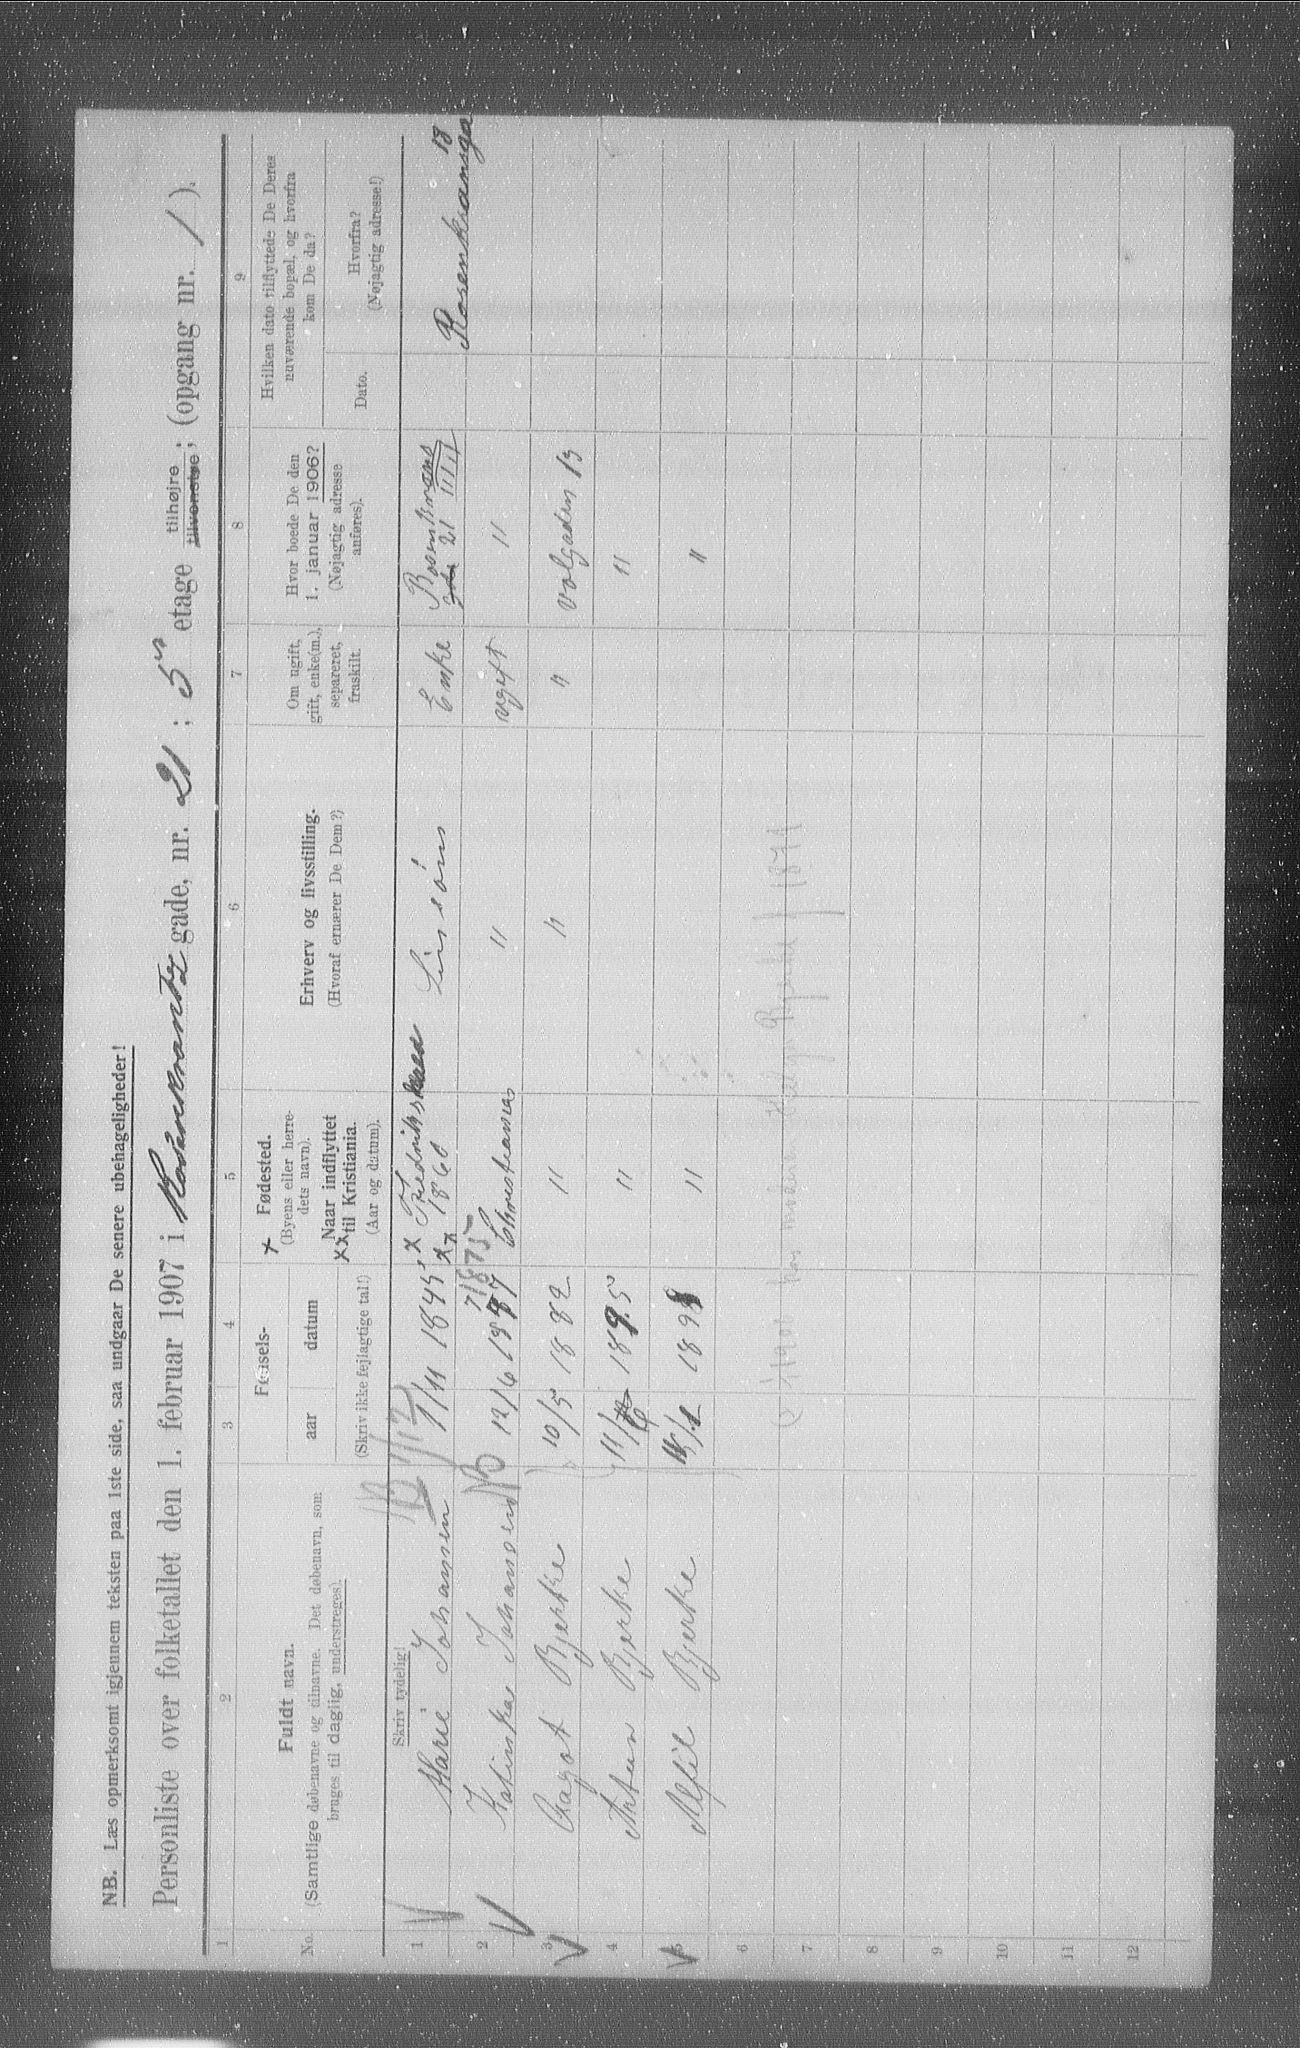 NB. Læs opmerksomt igjennem teksten paa 1ste side, saa undgaar De senere ubehageligheder!
Personliste over folketallet den 1. februar 1907 i Rosenkrantz gade, nr. 21; 5 etage tilhøjre tilvenstre; (opgang nr. 1).
1 2 3 4 5 6 7 8 9
No. Fuldt navn. (Samtlige døbenavne og tilnavne. Det døbenavn, som bruges til daglig, understreges).
Fødsels- aar datum (Skriv ikke fejlagtige tal!)
x Fødested. (Byens eller herredets navn). xx Naar indflyttet til Kristiania. (Aar og datum).
Erhverv og livsstilling. (Hvoraf ernærer De Dem?)
Om ugift, gift, enke(m.), separeret, fraskilt.
Hvor boede De den 1. januar 1906? (Nøjagtig adresse anføres).
Hvilken dato tilflyttede De Deres nuværende bopæl, og hvorfra kom De da?
Dato. Hvorfra? (Nøjagtig adresse!)
Skriv tydelig!
1 Marie Johansen 1/11 1845 x Fredrikshald xx 1860 Enke Rosenkrans 21 Rosenkransga 18
2 Kalinka Johansen 12/6 1887 71875 Christiania " ugift "
3 Ragot Bjerke 10/5 1882 " " " Volgaden 13
4 Anton Bjerke 11/6 1895 " "
5 Alfil Bjerke 1898 " "
6
7
8
9
10
11
12